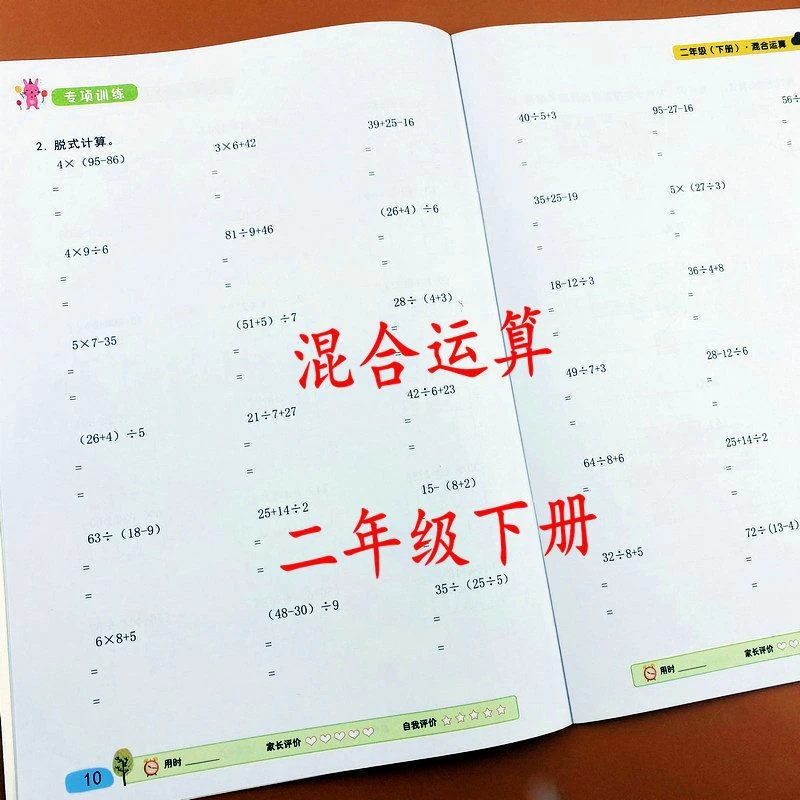 专项训练
2. 脱式计算。
4×（95-86）
3×6+42
39+25-16
=
=
=
=
=
=
4×9÷6
81÷9+46
（26+4）÷6
=
=
=
=
=
=
5×7-35
（51+5）÷7
28÷（4+3）
=
=
=
=
=
（26+4）÷5
21÷7+27
42÷6+23
=
=
=
=
=
=
63÷（18-9）
25+14÷2
15-（8+2）
=
=
=
=
=
6×8+5
（48-30）÷9
35÷（25÷5）
=
=
=
=
=
=
10
用时
家长评价
自我评价
二年级（下册）·混合运算
40÷5+3
95-27-16
56÷
=
=
=
=
35+25-19
5×（27÷3）
=
=
=
=
18-12÷3
36÷4+8
=
=
=
=
49÷7+3
28-12÷6
=
=
=
=
64÷8+6
25+14÷2
=
=
=
=
32÷8+5
72÷(13-4)
=
=
=
=
用时
家长评价
混合运算
二年级下册